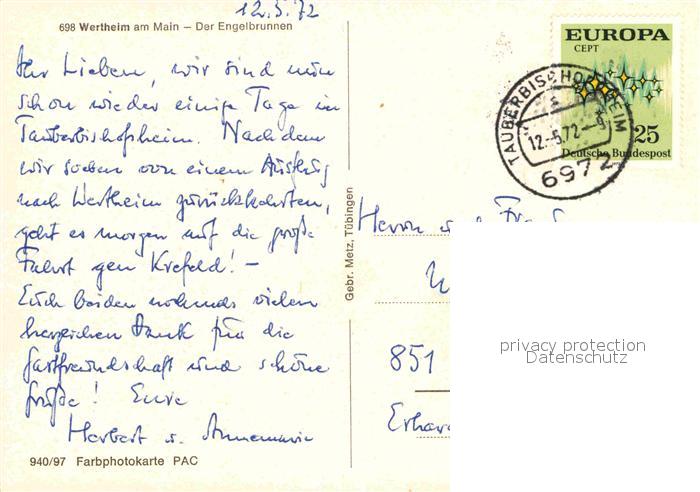 12.5.72
698 Wertheim am Main – Der Engelbrunnen
Ihr Lieben, wir sind nun
schon wieder einige Tage in
Tauberbishofsheim. Nachdem
wir soeben von einem Ausflug
nach Wertheim zurückkehrten,
geht es morgen auf die große
Fahrt gen Krefeld! –
Euch beiden nochmals vielen
herzlichen Dank für die
Gastfreundschaft und schöne
Grüße! Eure
Herbert u. Annemarie
940/97 Farbphotokarte PAC
Gebr. Metz, Tübingen
EUROPA
CEPT
25
Deutsche Bundespost
TAUBERBISCHOFSHEIM
12.-5.72
6972
Herrn u. Fr
851
Erhar
privacy protection
Datenschutz